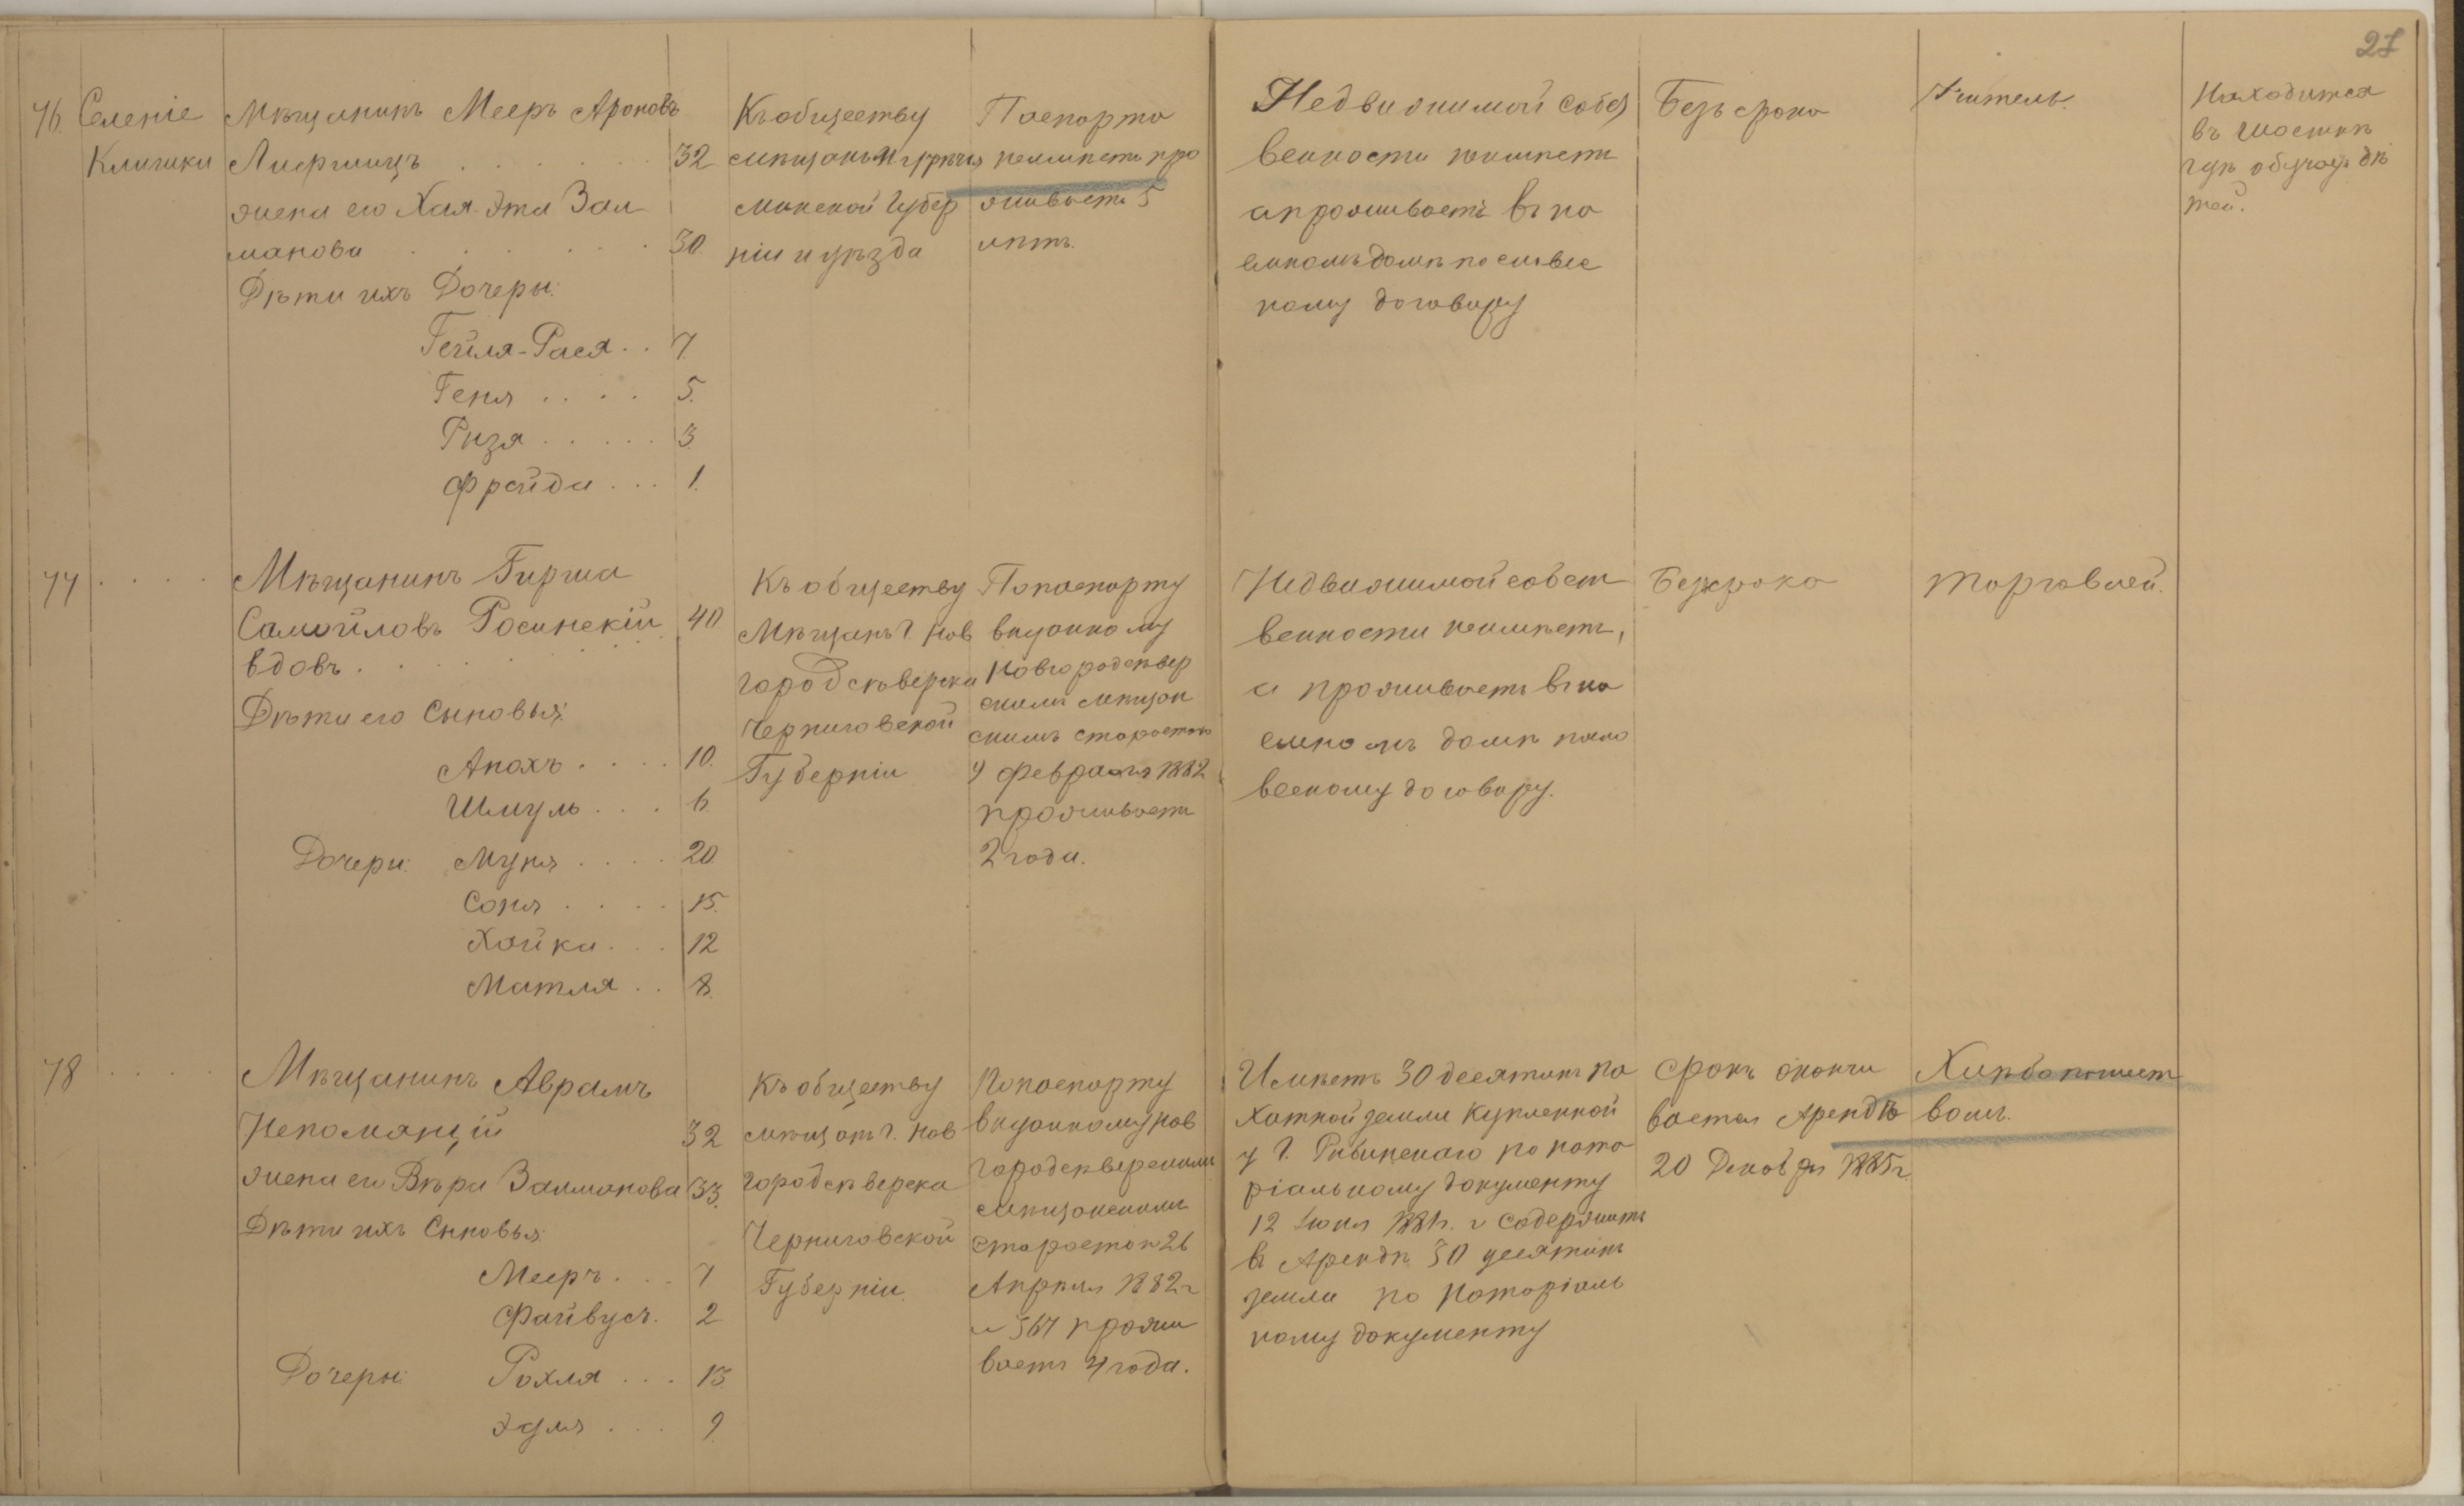 27
76. Селеніе
Кличики
Мѣщанинъ Мееръ Ароновъ
Лифшицъ 32
жена его Хая-Эта Зал
манова 30.
Дѣти ихъ Дочеры:
Гейля-Рася 7.
Геня 5.
Ризя 3
Фрейда 1.
Къ обществу
мѣщанъ
Минской Губер
ніи и уѣзда
Паспорта
неимѣетъ про
живаетъ 5
лѣтъ.
Недвижимой собст
венности неимѣетъ
а проживаетъ въ на
емномъ домѣ по словес
ному договору
Безъ срока
Учитель.
Находится
въ Шосткѣ
гдѣ обучаетъ дѣ
тей.
77
Мѣщанинъ Гирша
Самойловъ Росинскій 40
вдовъ
Дѣти его Сыновья:
Анохъ 10.
Шмуль 6.
Дочери: Муня 20
Соня 15.
Хайка 12
Матля 8.
Къ обществу
Мѣщанъ г. Нов
городсѣверска
Черниговской
Губерніи
По паспорту
выданному
Новгородсѣвер
скимъ мѣщан
скимъ старостою
9 февраля 1882
проживаетъ
2 года.
Недвижимой собст
венности неимѣетъ,
а проживаетъ въ на
емномъ домѣ посло
весному договору.
Безсрока
Торговлей.
78
Мѣщанинъ Аврамъ
Непомянщій 32
жена его Вѣра Залманова 33.
Дѣти ихъ Сыновья:
Мееръ 7
Файвусъ. 2
Дочеры: Рохля 13
Эдля 9
Къ обществу
мѣщанъ г. Нов
городсѣверска
Черниговской
Губерніи.
По паспорту
выданному Нов
городсѣверскимъ
мѣщанскимъ
старостою 26
Апрѣля 1882 г
№ 367 прожи
ваетъ 4 года.
Имѣетъ 30 десятинъ па
хатной земли купленной
у Г. Рывинскаго по нота
ріальному документу
12 1881 г. и содержитъ
въ Арендѣ 30 десятинъ
земли по Нотаріаль
ному документу
Срокъ оканчи
вается Арендѣ
20 Декабря 1885 г.
Хлѣбопашест
вомъ.